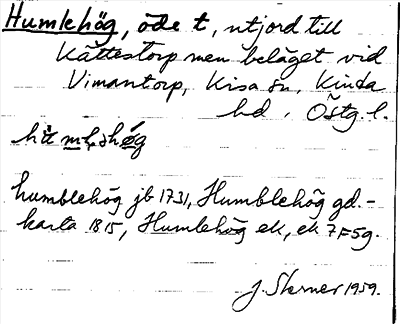 Humlehög, öde t, utjord till
Kättestorp men beläget vid
Vimantorp, Kisa sn, Kinda
hd, Östg. l.
humblehög jb 1731, Humblehög gd.-
karta 1815, Humlehög ek, ek 7F5g.
J. Skerner 1959.